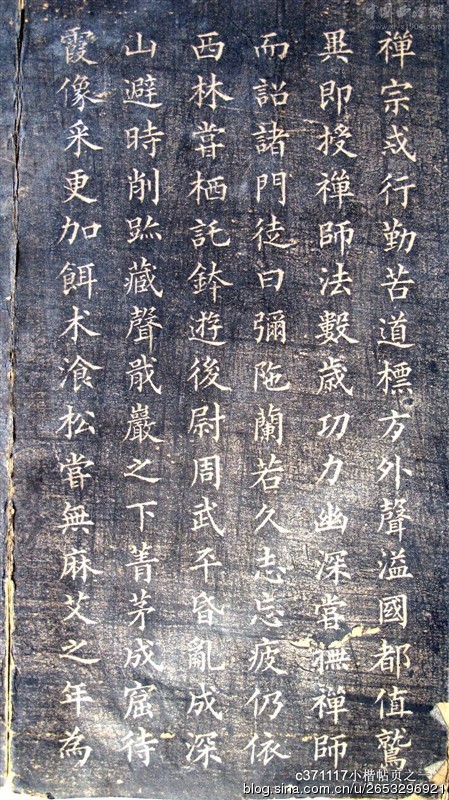 禪宗戒行勤苦道標方外聲溢國都值鷲
即授禪師法數歲功力幽深嘗撫禪師
而詔諸門徒曰彌陁蘭若久志忘疲仍依
西林嘗栖託鉢遊後尉周武平昏亂成深
山避時削跡藏聲戢巖之下菁茅成窟待
霞像采更加餌术飡松嘗無麻艾之年為
c371117小楷帖页之
blog.sina.com.cn/u/2653296921